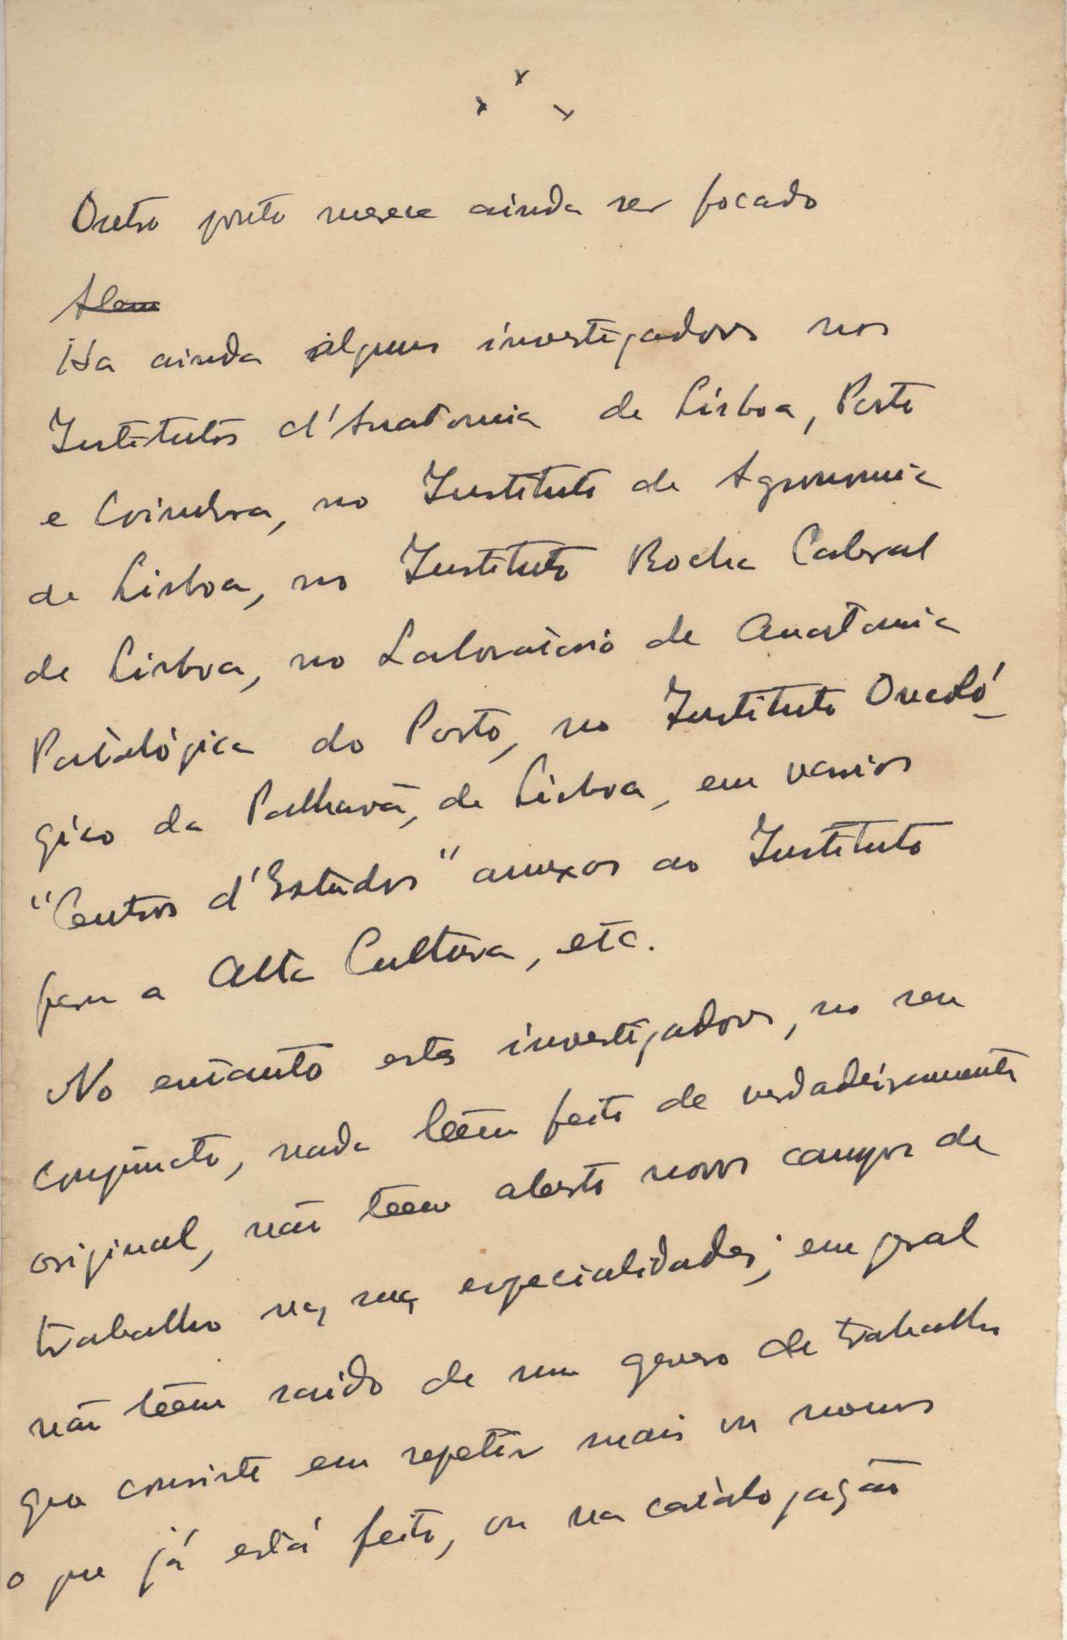 x x x
Outro ponto merece ainda ser focado
Alem
Ha ainda alguns investigadores nos
Institutos d'Anatomia de Lisboa, Porto
e Coimbra, no Instituto de Agronomia
de Lisboa, no Instituto Rocha Cabral
de Lisboa, no Laboratorio de Anatomia
Patológica do Porto, no Instituto Oncoló-
gico da Palhavã, de Lisboa, em varios
"Centros d'Estudos" anexos ao Instituto
para a Alta Cultura, etc.
No entanto estes investigadores, no seu
conjuncto, nada teem feito de verdadeiramente
original, não teem aberto novos campos de
trabalho nas suas especialidades; em geral
não teem saido de um genero de trabalho
que consiste em repetir mais ou menos
o que já está feito, ou na catalogação